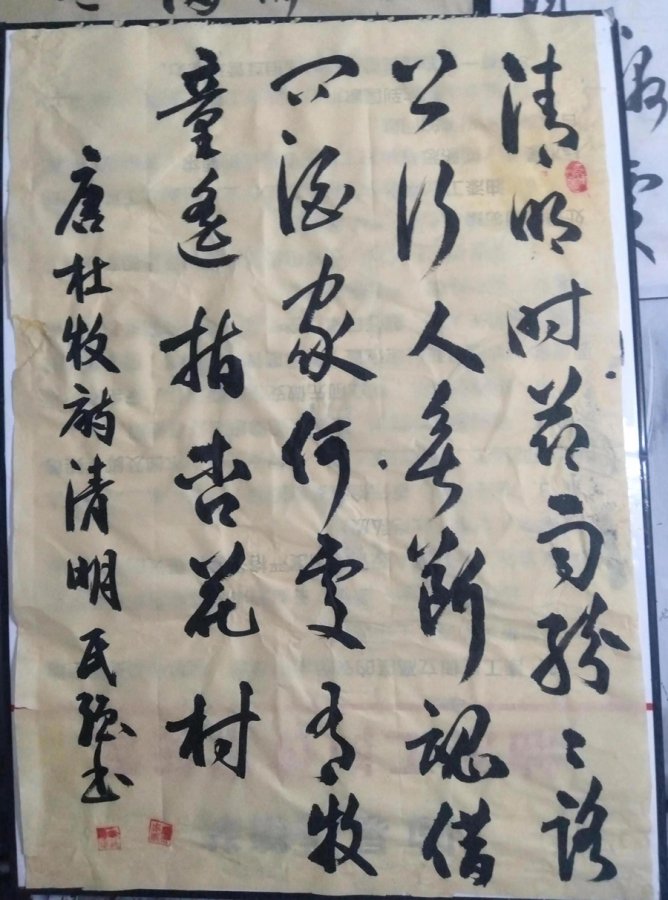 清明时节雨纷々路
上行人欲断魂借
问酒家何處有牧
童遥指杏花村
唐杜牧诗清明民强书